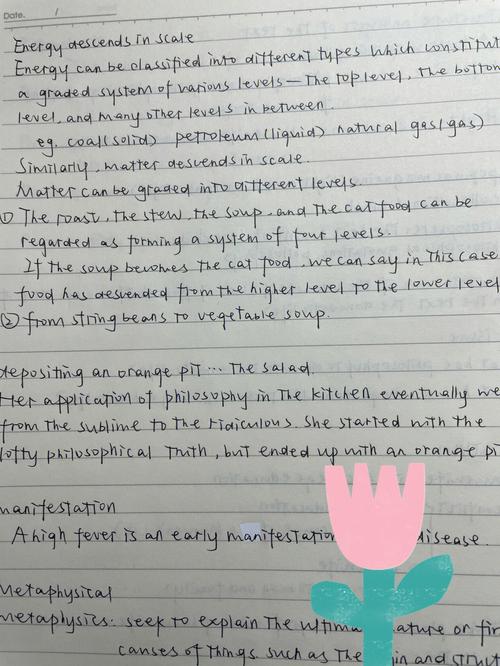 Date. /
Energy descends in scale
Energy can be classified into different types which constitut
a graded system of various levels — The top level, the bottom
level, and many other levels in between.
eg. coal(solid) petroleum(liquid) natural gas(gas)
Similarly, matter descends in scale.
Matter can be graded into different levels.
① The roast, the stew, the soup, and the cat food can be
regarded as forming a system of four levels.
If the soup becomes the cat food, we can say in this case
food has descended from the higher level to the lower level
② from string beans to vegetable soup.
depositing an orange pit ... The salad.
Her application of philosophy in the kitchen eventually we
from the sublime to the ridiculous. She started with the
lofty philosophical truth, but ended up with an orange pi
manifestation
A high fever is an early manifestation disease.
Metaphysical
metaphysics: seek to explain the ultima ature or fir
causes of things such as the in and